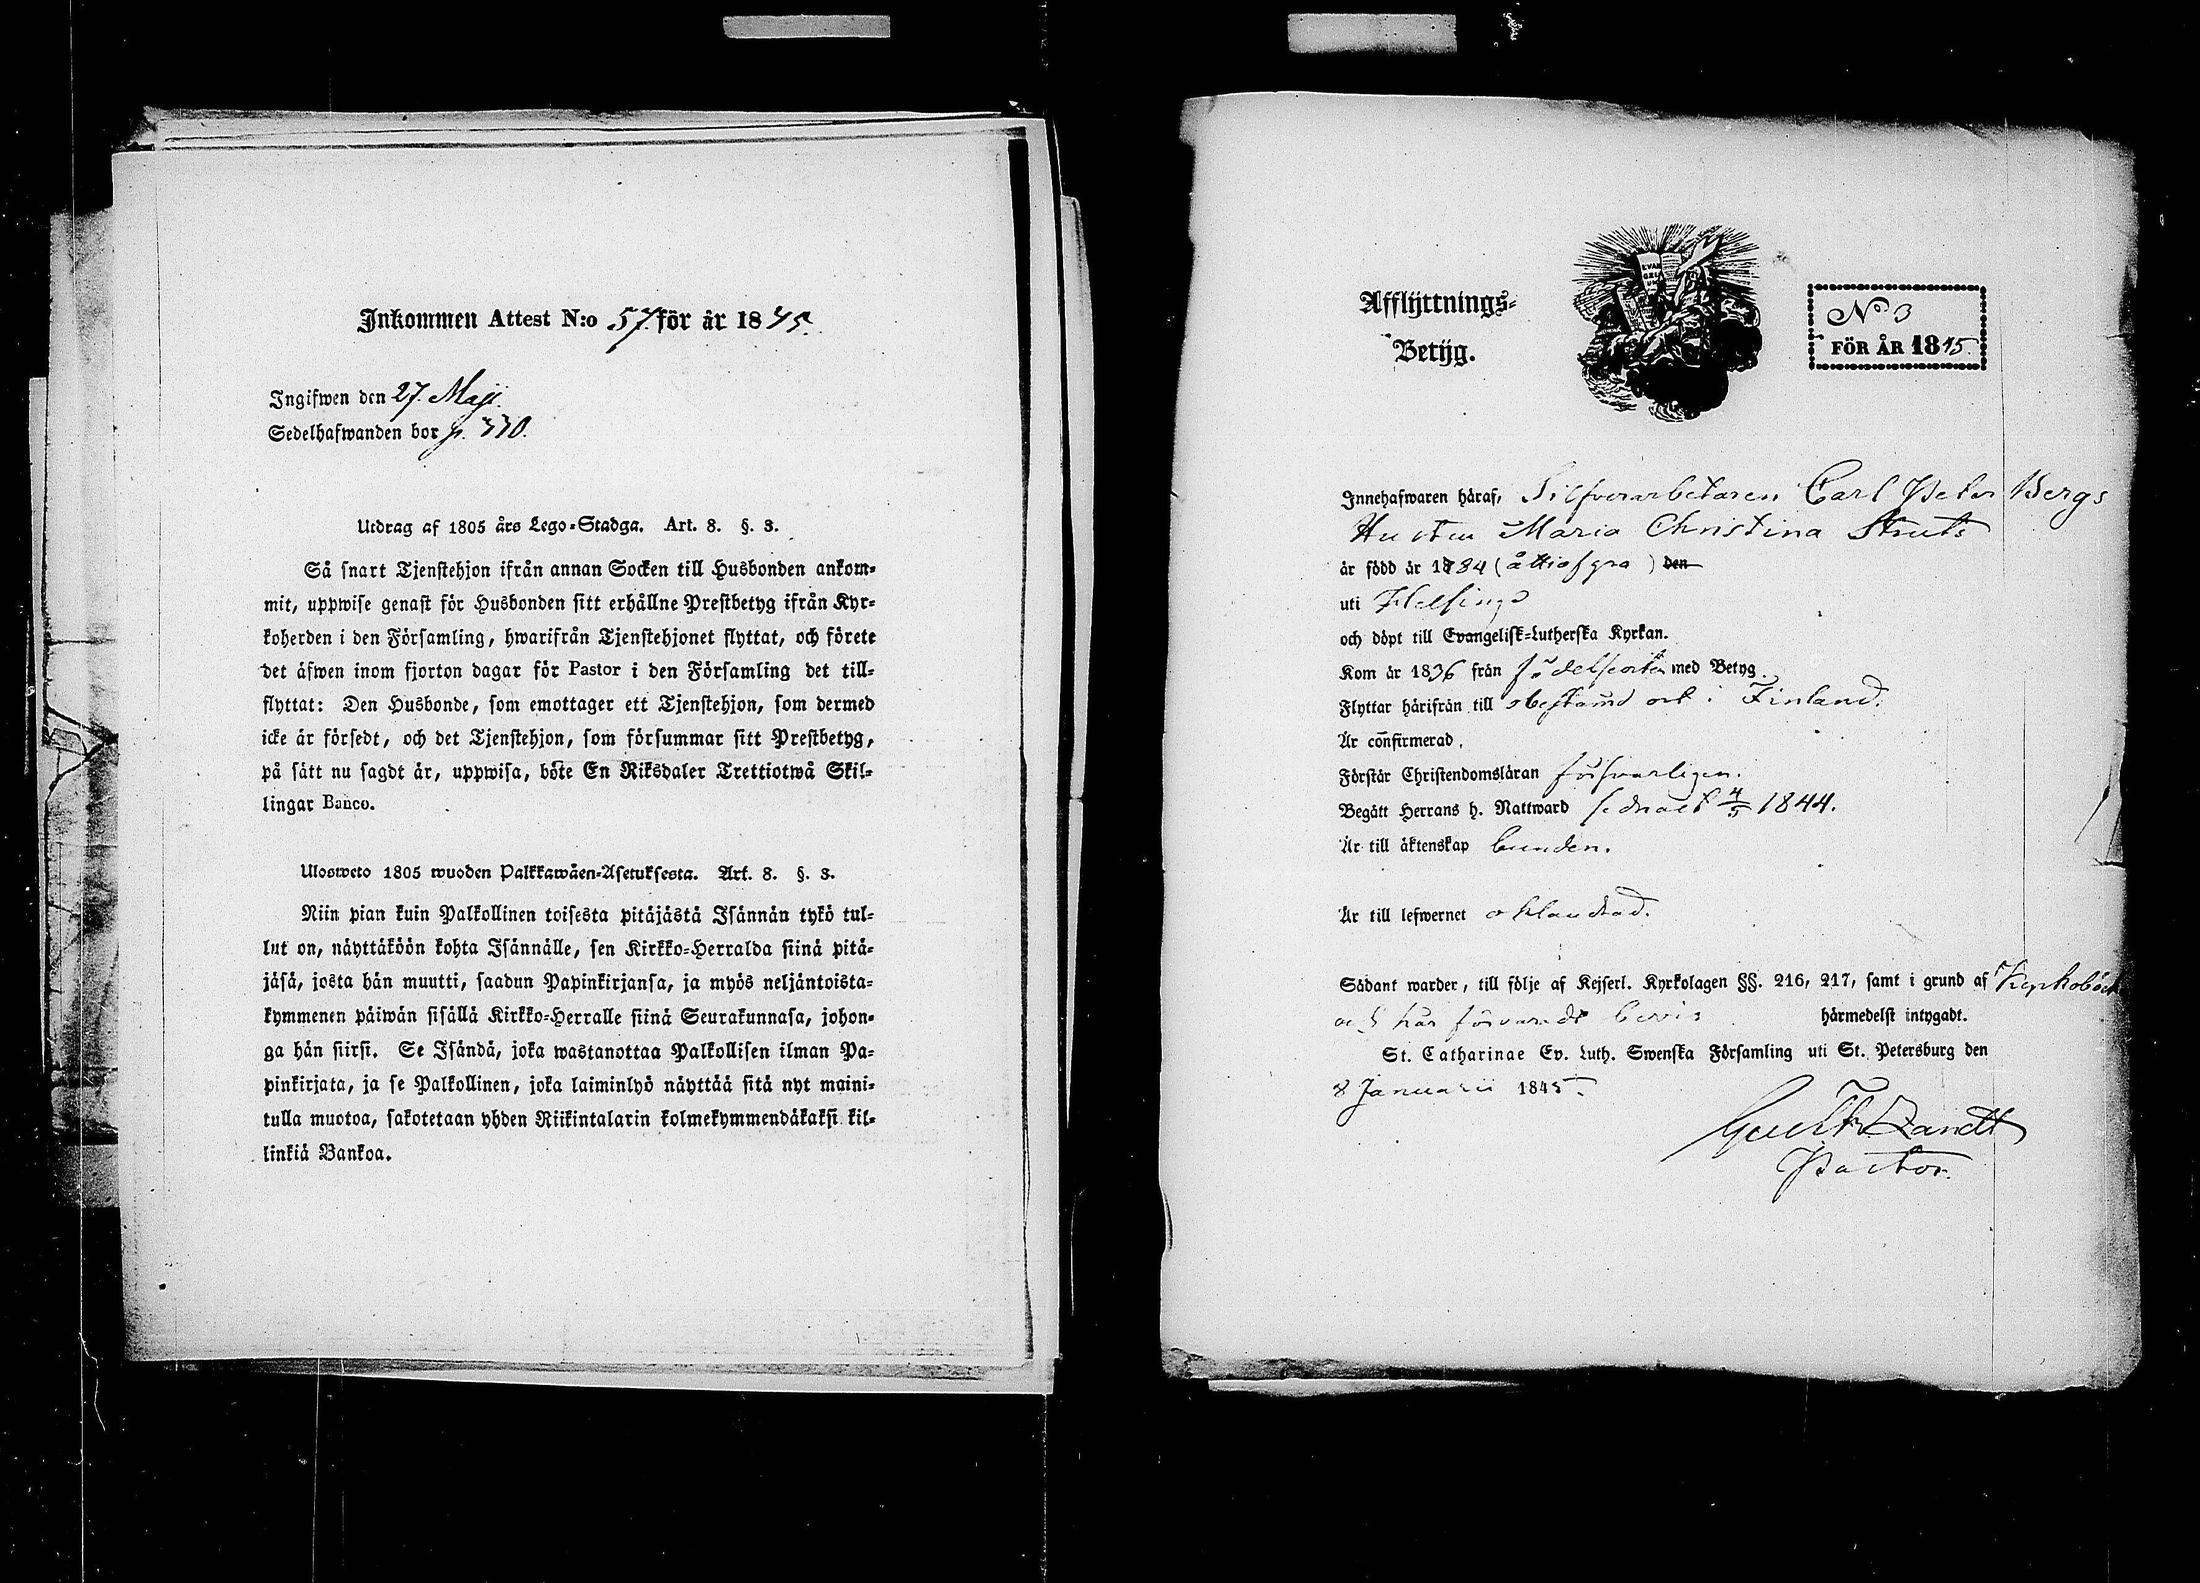 Inkommen Attest N:o 57. för år 1845.
Ingifwen den 27. Maji.
Sedelhafwanden bor p. 330.
Utdrag af 1805 års Lego-Stadga. Art. 8. §. 3.
Så snart Tjenstehjon ifrån annan Socken till Husbonden ankom-
mit, uppwise genast för Husbonden sitt erhållne Prestbetyg ifrån Kyr-
koherden i den Församling, hwarifrån Tjenstehjonet flyttat, och förete
det äfwen inom fjorton dagar för Pastor i den Församling det till-
flyttat: Den Husbonde, som emottager ett Tjenstehjon, som dermed
icke är försedt, och det Tjenstehjon, som försummar sitt Prestbetyg,
på sätt nu sagdt är, uppwisa, böte En Riksdaler Trettiotwå Skil-
lingar Banco.
Ulosweto 1805 wuoden Palkkawäen-Asetuksesta. Art. 8. §. 3.
Niin pian kuin Palkollinen toisesta pitäjästä Isännän tykö tul-
lut on, näyttäköön kohta Isännälle, sen Kirkko-Herralda siinä pitä-
jäsä, josta hän muutti, saadun Papinkirjansa, ja myös neljäntoista-
kymmenen päiwän sisällä Kirkko-Herralle siinä Seurakunnasa, johon-
ga hän siirsi. Se Isändä, joka wastanottaa Palkollisen ilman Pa-
pinkirjata, ja se Palkollinen, joka laiminlyö näyttää sitä nyt maini-
tulla muotoa, sakotetaan yhden Riikintalarin kolmekymmendäkaksi kil-
linkiä Bankoa.
Afflyttnings-
Betyg.
EVAN
GELI
N:o 3
FÖR ÅR 1845.
Innehafwaren häraf, Silfverarbetaren Carl Peter Bergs
Hustru Maria Christina Struts
är född år 1784 (åttiofyra) den
uti Helsinge
och döpt till Evangelisk-Lutherska Kyrkan.
Kom år 1836 från födelseorten med Betyg.
Flyttar härifrån till obestämd ort i Finland.
Är confirmerad.
Förstår Christendomsläran försvarligen.
Begått Herrans h. Nattward sednast 4/5 1844.
Är till äktenskap bunden.
Är till lefwernet oklandrad.
Sådant warder, till följe af Kejserl. Kyrkolagen §§. 216, 217, samt i grund af Kyrkoböck
och här förvarade bevis härmedelst intygadt.
St. Catharinae Ev. Luth. Swenska Församling uti St. Petersburg den
8 Januarii 1845.
Gust. Zandt
Pastor.